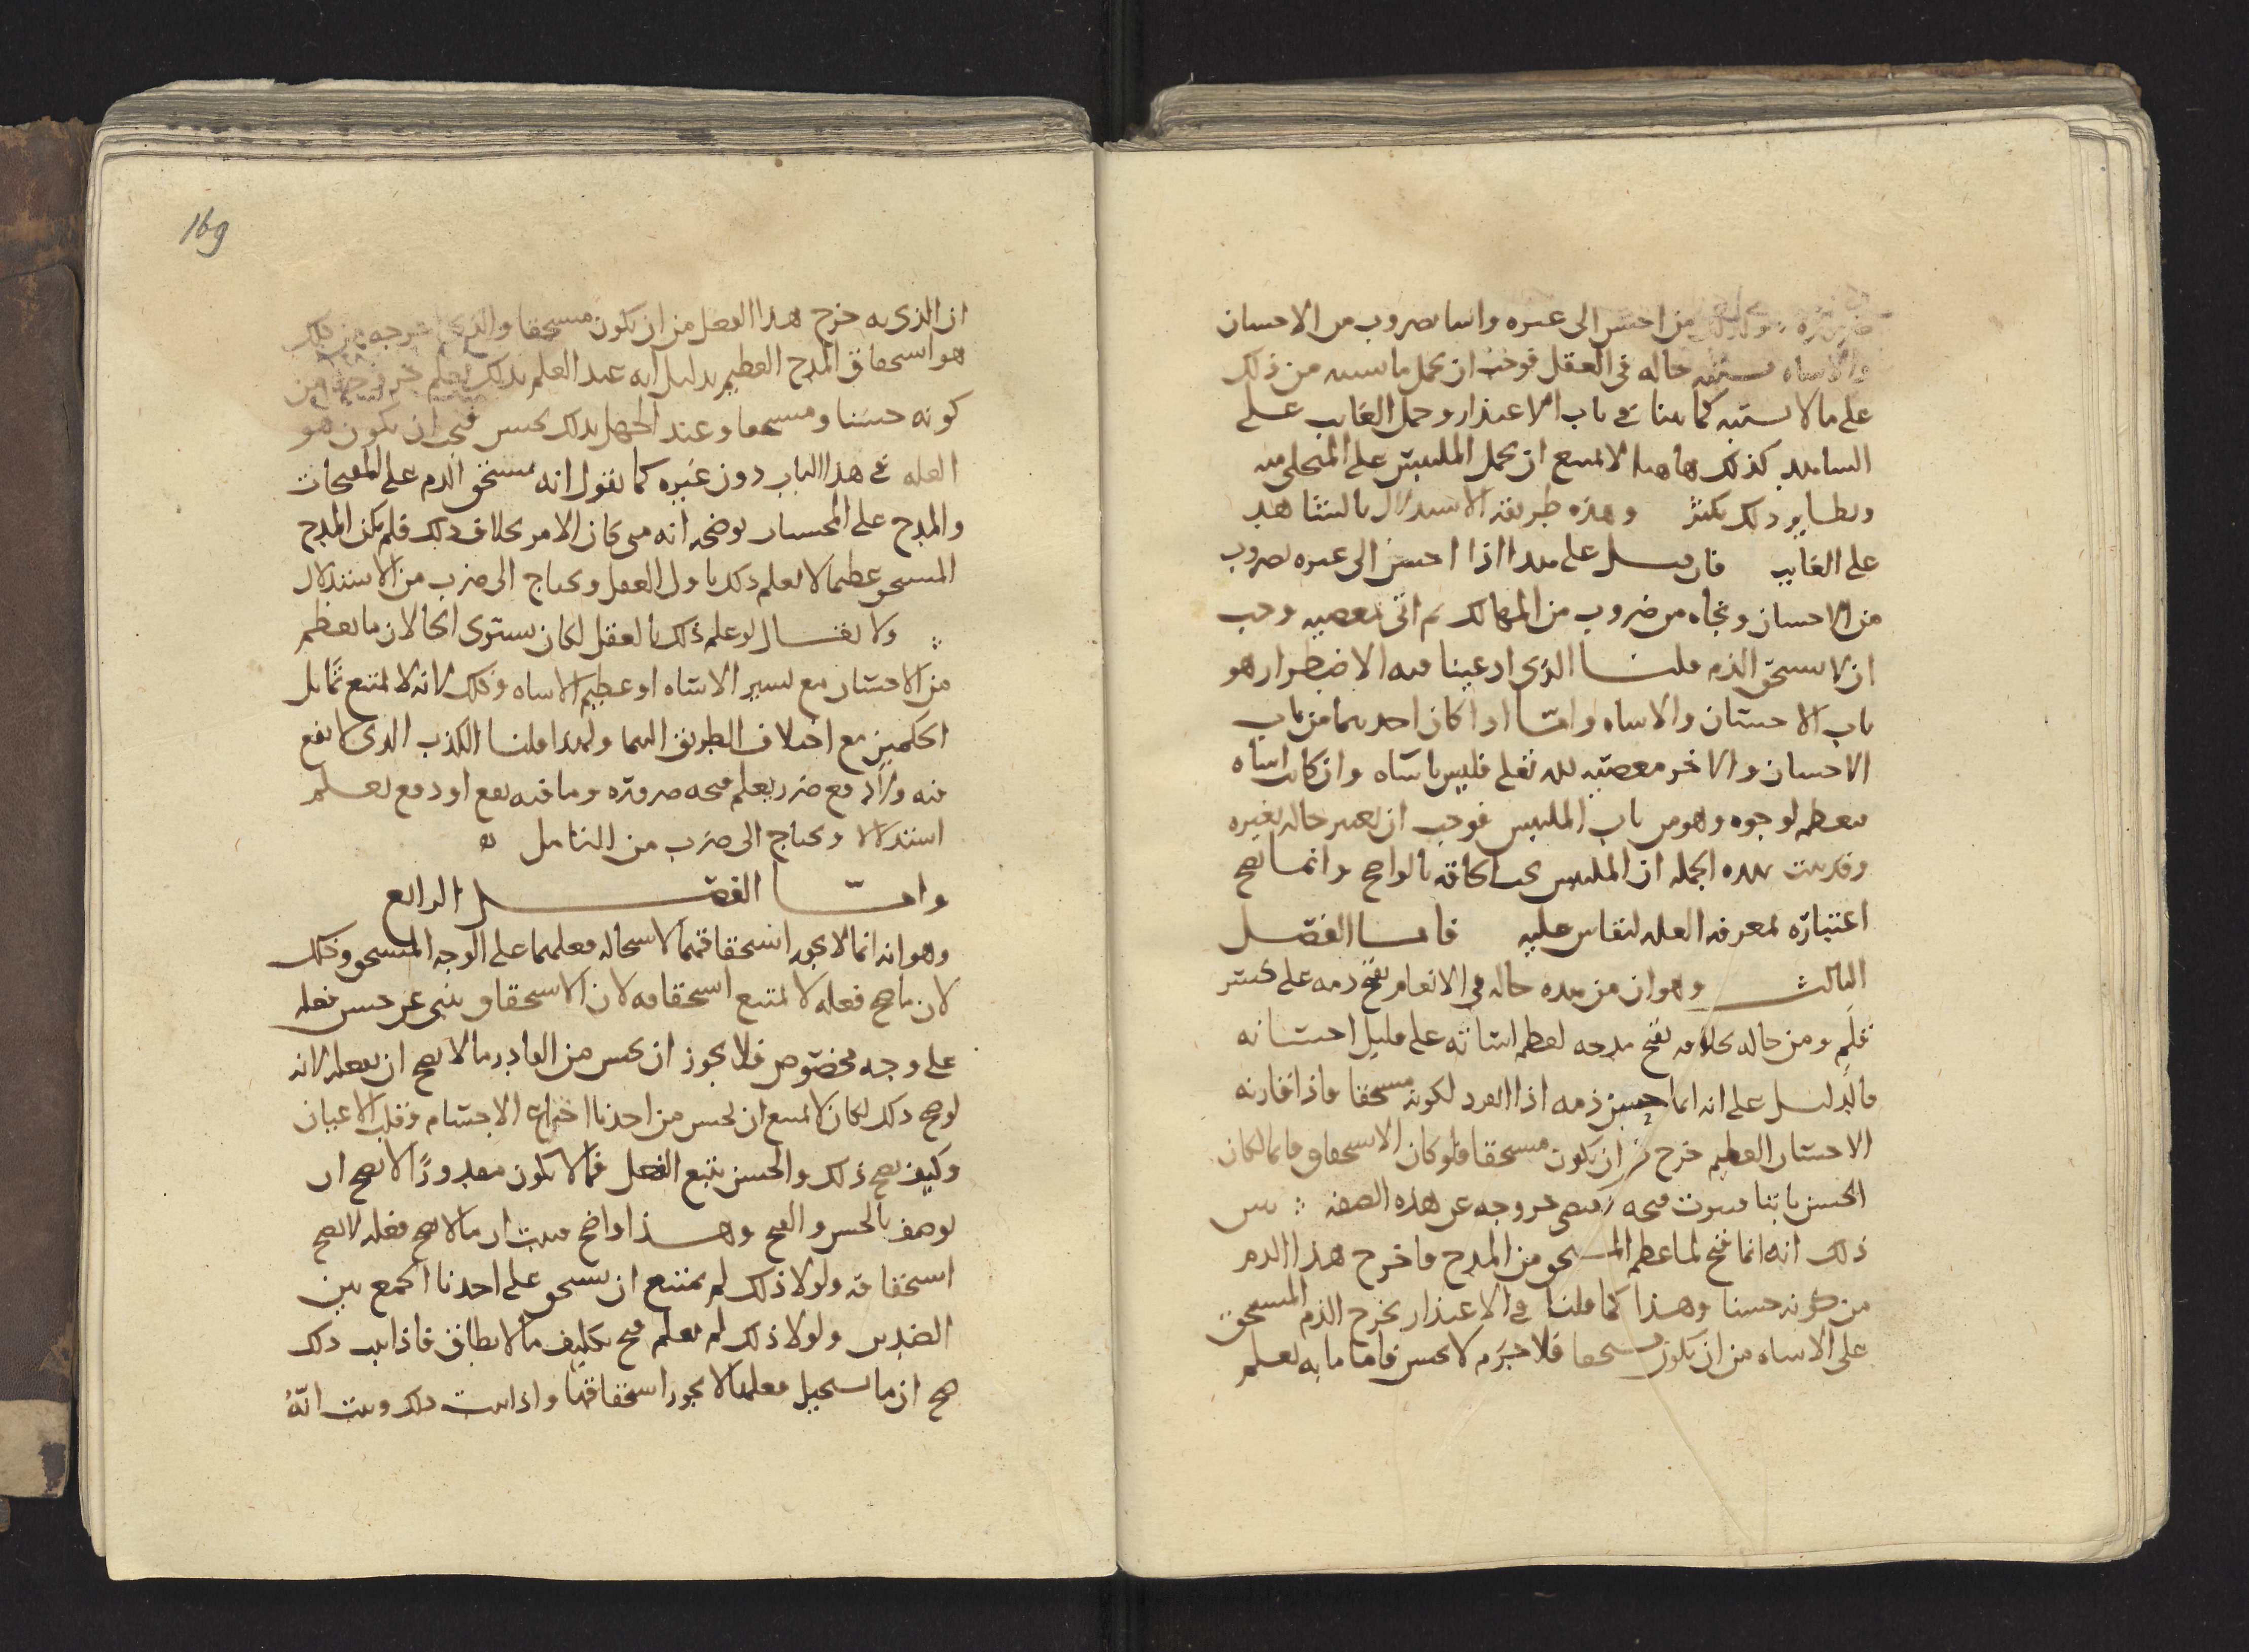 من احسن الى غيره واسا بضروب من الاحسان
والاساه حاله فى العقل فوجب ان يحمل ما من ذلك
على ما لا يشتبه كما بينا فى باب الاعتذار وحمل الغايب على
الشاهد كذلك هاهنا لا يمتنع ان يحمل الملتبس على المتجلى منه
ونظاير ذلك يكثر وهذه طريقة الاستدلال بالشاهد
على الغايب فان قيل على هذا اذا احسن الى غيره بضروب
من الاحسان ونجاه من ضروب من المهالك ثم اتى بمعصيه وجب
ان لا يستحق الذم قلنا الذى ادعينا فيه الاضطرار هو
باب الاحسان والاساه وامّا اذا كان احدهما من باب
الاحسان والاخر معصيه لله تعلى فليس باساه وان كان اساه
فعظمه لوجوه وهو من باب الملتبس فوجب ان يعتبر حاله بغيره
وقد بينت بهذه الجمله ان الملتبس يجب الحاقه بالواضح وانما يصح
اعتباره لمعرفه العله لنقاس عليه فاما الفصل
الثالث وهو ان من هذه حاله فى الانعام يقبح ذمه على كسر
قلم ومن حاله بخلافه يقبح مدحه لعظم اساته على قليل احسانه
فالدليل على انه انما حسن ذمه اذا انفرد لكونه مستحقا فاذا قارنه
الاحسان العظيم خرج من ان يكون مستحقا فلو كان الاستحقاق قايما لكان
الحسن ثابتا فثبوت قبحه يقتضى خروجه عن هذه الصفه يبين
ذلك انه انما قبح لما عظم المستحق من المدح فاخرج هذا الذم
من كونه حسنا وهذا كما قلنا فى الاعتذار يخرج الذم المستحق
على الاساه من ان يكون مستحقا فلا جرم لا يحسن فاما ما به يعلم
169
ان الذى به خرج هذا الفعل من ان يكون مستحقا والذى اخرجه من ذلك
هو استحقاق المدح العظيم بدليل انه عند العلم بذلك يعلم خروجه من
كونه حسنا ومستحقا وعند الجهل بذلك يحسن فيجب ان يكون هو
العله فى هذا الباب دون غيره كما نقول انه يستحق الذم على المقبحات
والمدح على المحسنات يوضحه انه متى كان الامر بخلاف ذلك فلم يكن المدح
المستحق عظيما لا يعلم ذلك باول العقل ويحتاج الى ضرب من الاستدلال
ولا يقال لو علم ذلك بالعقل لكان يستوى الحالان ما يعظم
من الاحسان مع يسير الاساه او عظيم الاساه وذلك لانه لا يمتنع تماثل
الحكمين مع اختلاف الطريق اليهما ولهذا قلنا الكذب الذى لا نفع
فيه ولا دفع ضرر يعلم قبحه ضرورة وما فيه نفع او دفع يعلم
استدلالا ويحتاج الى ضرب من التامل
وامّا الفصل الرابع
وهو انه انما لا يجوز استحقاقهما لاستحاله فعلهما على الوجه المستحق وذلك
لان ما صح فعله لا يمتنع استحقاقه لان الاستحقاق ينبى عن حسن فعله
على وجه مخصوص فلا يجوز ان يحسن من القادر ما لا يصح ان يفعله لانه
لو صح ذلك لكان لا يمتنع ان يحسن من احدنا اختراع الاجسام وقلب الاعيان
وكيف يصح ذلك والحسن يتبع الفعل فما لا يكون مقدورًا لا يصح ان
يوصف بالحسن والقبح وهذا واضح فبيت ان ما لا يصح فعله لا يصح
استحقاقه ولولا ذلك لم يمتنع ان يستحق على احدنا الجمع بين
الضدين ولولا ذلك لم يعلم قبح تكليف ما لا يطاق فاذا ثبت ذلك
صح ان ما يستحيل فعلهما لا يجوز استحقاقهما واذا ثبت ذلك وبينت انّه